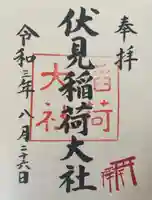 奉拝
伏見稲荷大社
稲荷
大社
令和三年八月二十六日